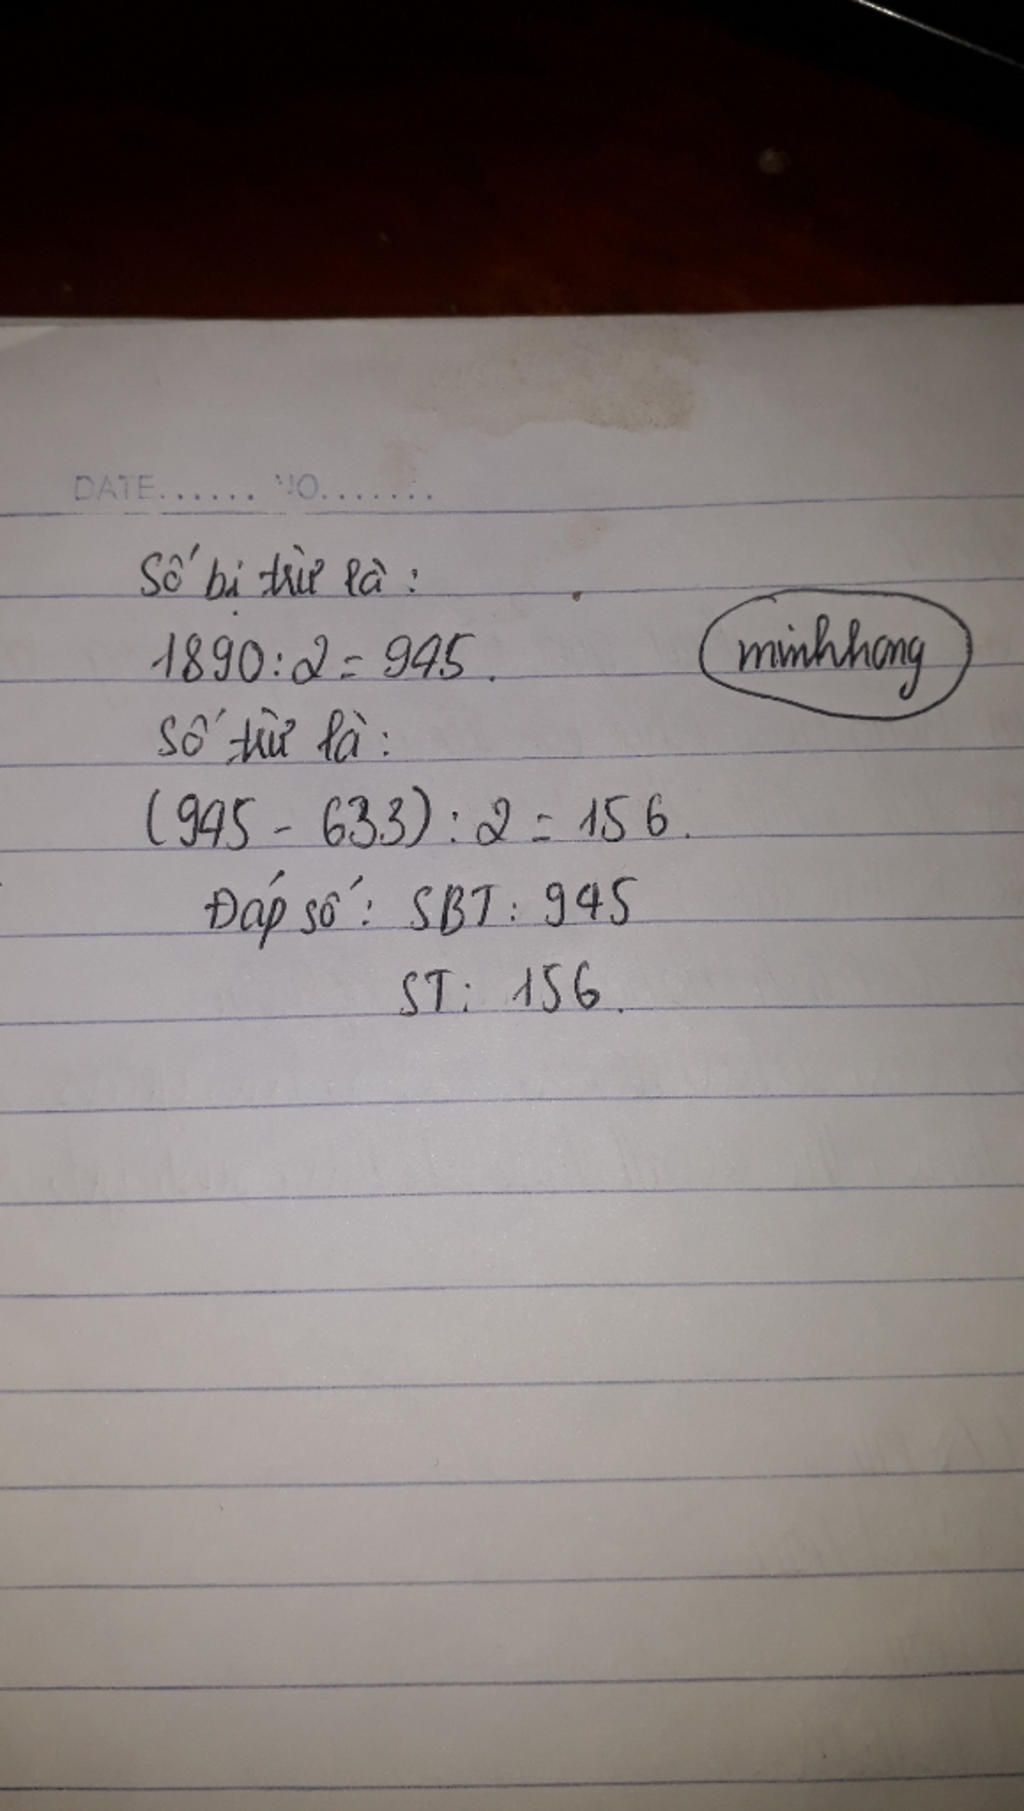 DATE...... NO.......
Số bị trừ là:
1890:2=945.
minhhong
Số trừ là:
(945-633):2=156.
Đáp số: SBT: 945
ST: 156.